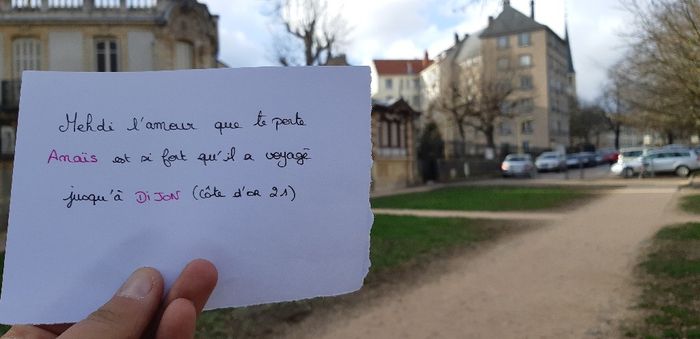 Mehdi l'amour que te porte
Anaïs est si fort qu'il a voyagé
jusqu'à DiJON (Côte d'OR 21)